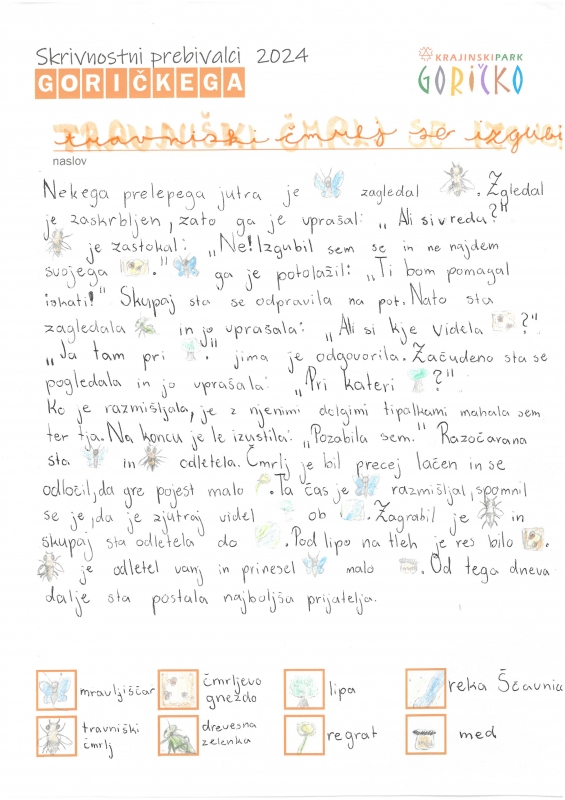 Skrivnostni prebivalci 2024
GORIČKEGA
KRAJINSKI PARK
GORIČKO
travniški čmrlj se izgubi
naslov
Nekega prelepega jutra je zagledal . Zgledal
je zaskrbljen, zato ga je vprašal: „Ali si vredu?"
je zastokal: „Ne! Izgubil sem se in ne najdem
svojega ." ga je potolažil: „Ti bom pomagal
iskati!" Skupaj sta se odpravila na pot. Nato sta
zagledala in jo vprašala: „Ali si kje videla ?"
„Ja tam pri ." jima je odgovorila. Začudeno sta se
pogledala in jo vprašala: „Pri kateri ?"
Ko je razmišljala, je z njenimi dolgimi tipalkami mahala sem
ter tja. Na koncu je le izustila: „Pozabila sem." Razočarana
sta in odletela. Čmrlj je bil precej lačen in se
odločil, da gre pojest malo . Ta čas je razmišljal, spomnil
se je, da je zjutraj videl ob . Zagrabil je in
skupaj sta odletela do . Pod lipo na tleh je res bilo .
je odletel vanj in prinesel malo . Od tega dneva
dalje sta postala najboljša prijatelja.
mravljiščar čmrljevo gnezdo lipa reka Ščavnica
travniški čmrlj drevesna zelenka regrat med